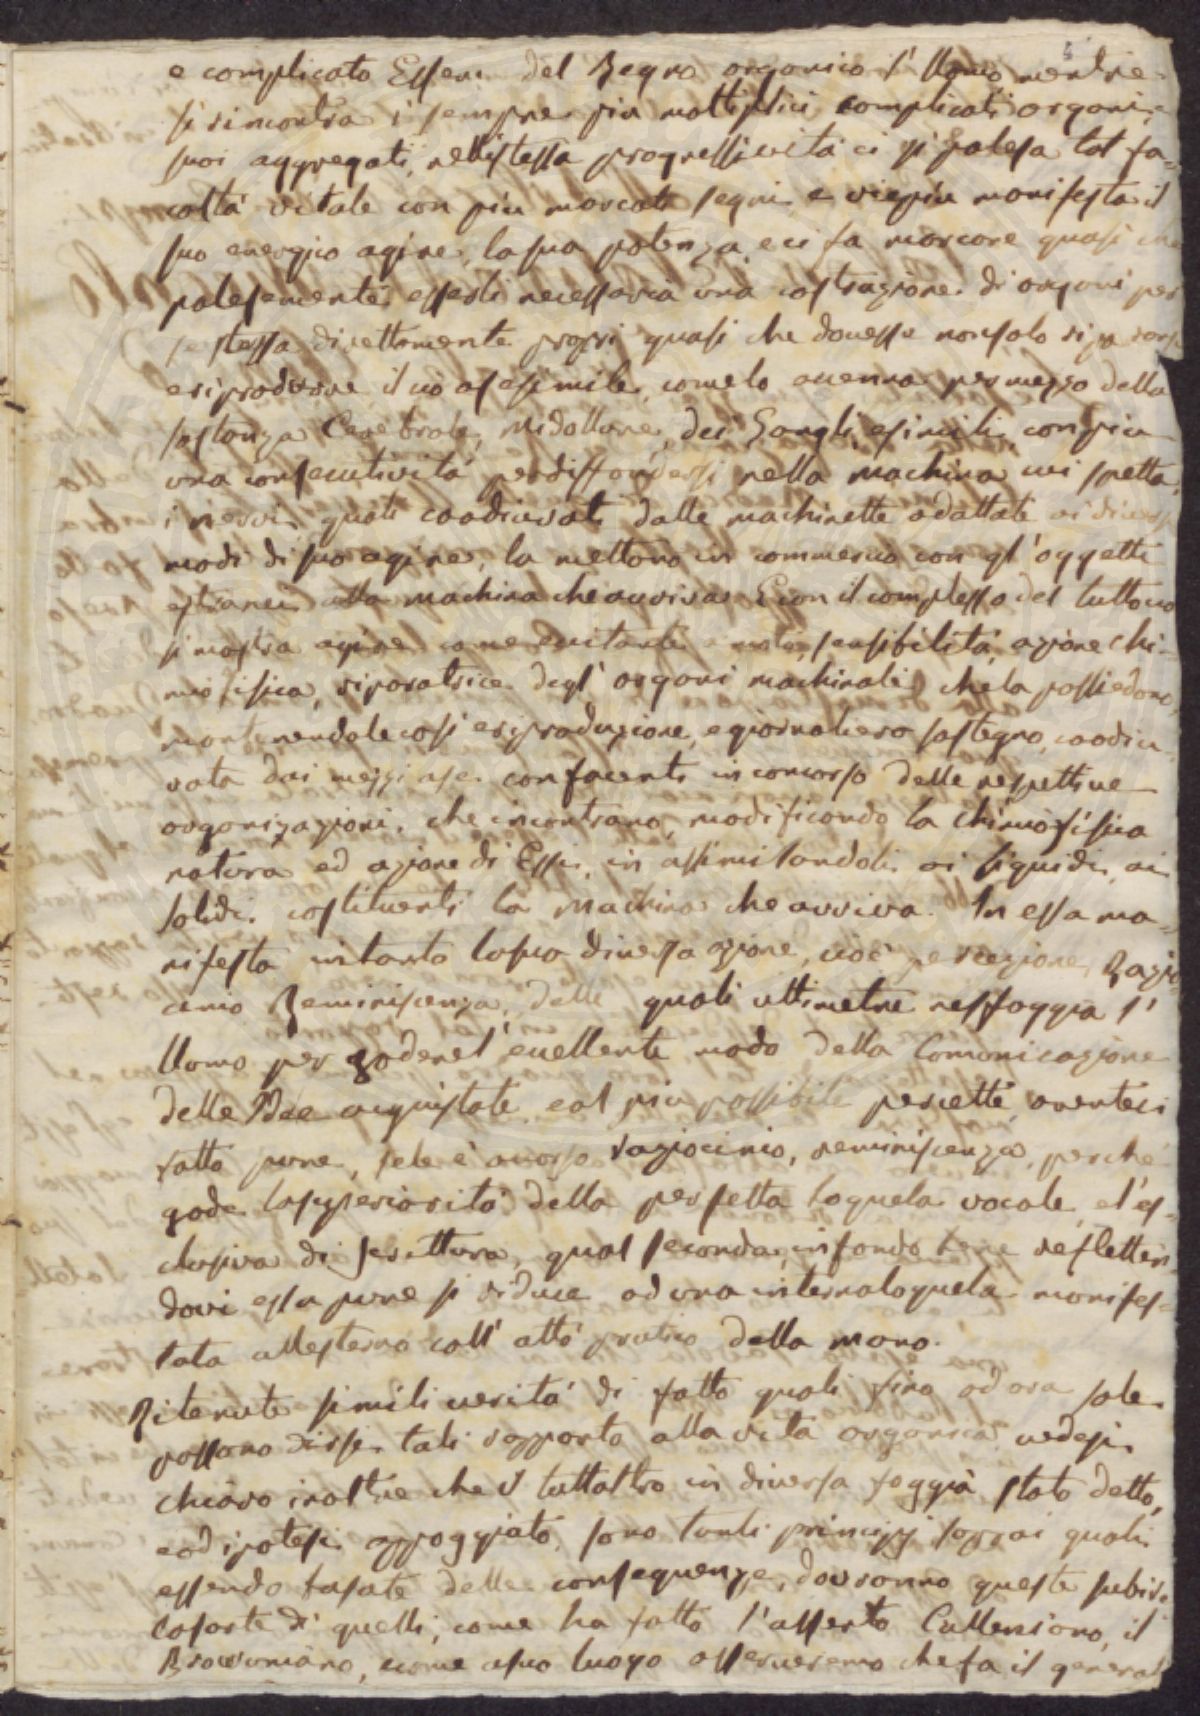 e complicato Essere del Regno organico l'Uomo, mentre
si rincontra i sempre più moltiplici complicati organi,
suoi aggregati, nell'istessa progressività ci si palesa tal fa-
coltà vitale con più marcati segni e viepiù manifesta il
suo energico agire, la sua potenza, e ci fa marcare quasi che
palesemente esserli necessaria una costruzione di organi per
se stessa direttamente propri quasi che dovesse non solo
e riprodurre il ciò a se simile, come lo accenna per mezzo della
sostanza Cerebrale, Midollare, dei Gangli, e simili, con più
una consecutività per diffondersi nella machina cui spetta,
i nervi quali coadiuvati dalle machinette adattate ai diversi
modi di suo agire, la mettono in commercio con gl'oggetti
estranei alla machina che avviva. E con il complesso del tutto ciò
si mostra agire come eccitante a moto, sensibilità, azione chi-
mio fisica, riparatrice degl'organi machinali, che la possiedono
mantenendole così e riproduzione, e giornaliero sostegno, coadiu-
vata dai mezzi a se confacenti in concorso delle respettive
organizazioni che incontrano, modificando la chimio fisica
natura ed azione di Essi, in assimilandoli ai liquidi, ai
solidi costituenti la Machina che avviva. In essa ma-
nifesta intanto la sua diversa azione, cioè percezione, Razio-
cinio Reminiscenza, delle quali ultimetre nesfoggia l'
Uomo per godere l'eccellente modo della Comunicazione
delle Idee acquistate, e al più possibile percette, aventeci
fatto pure, se le è avorso raziocinio, reminiscenza, perché
gode la superiorità della perfetta loquela vocale, e l'es-
clusiva di Scrittura, qual seconda, in fondo bene refletten-
dovi essa pure si riduce ad una interna loquela manifes-
tata all'esterno coll'atto pratico della mano.
Ritenute simili verità di fatto quali fino ad ora sole
possono dirsi tali rapporto alla vita organica vedesi
chiaro inoltre che il tutt'altro in diversa foggia stato detto,
e ad ipotesi appoggiato, sono tanti principj soprai quali
essendo basate delle conseguenze, dovranno queste subire
la sorte di quelli, come ha fatto l'asserto Culleniano, il
Browniano, e come a suo luogo osserveremo che fa il general